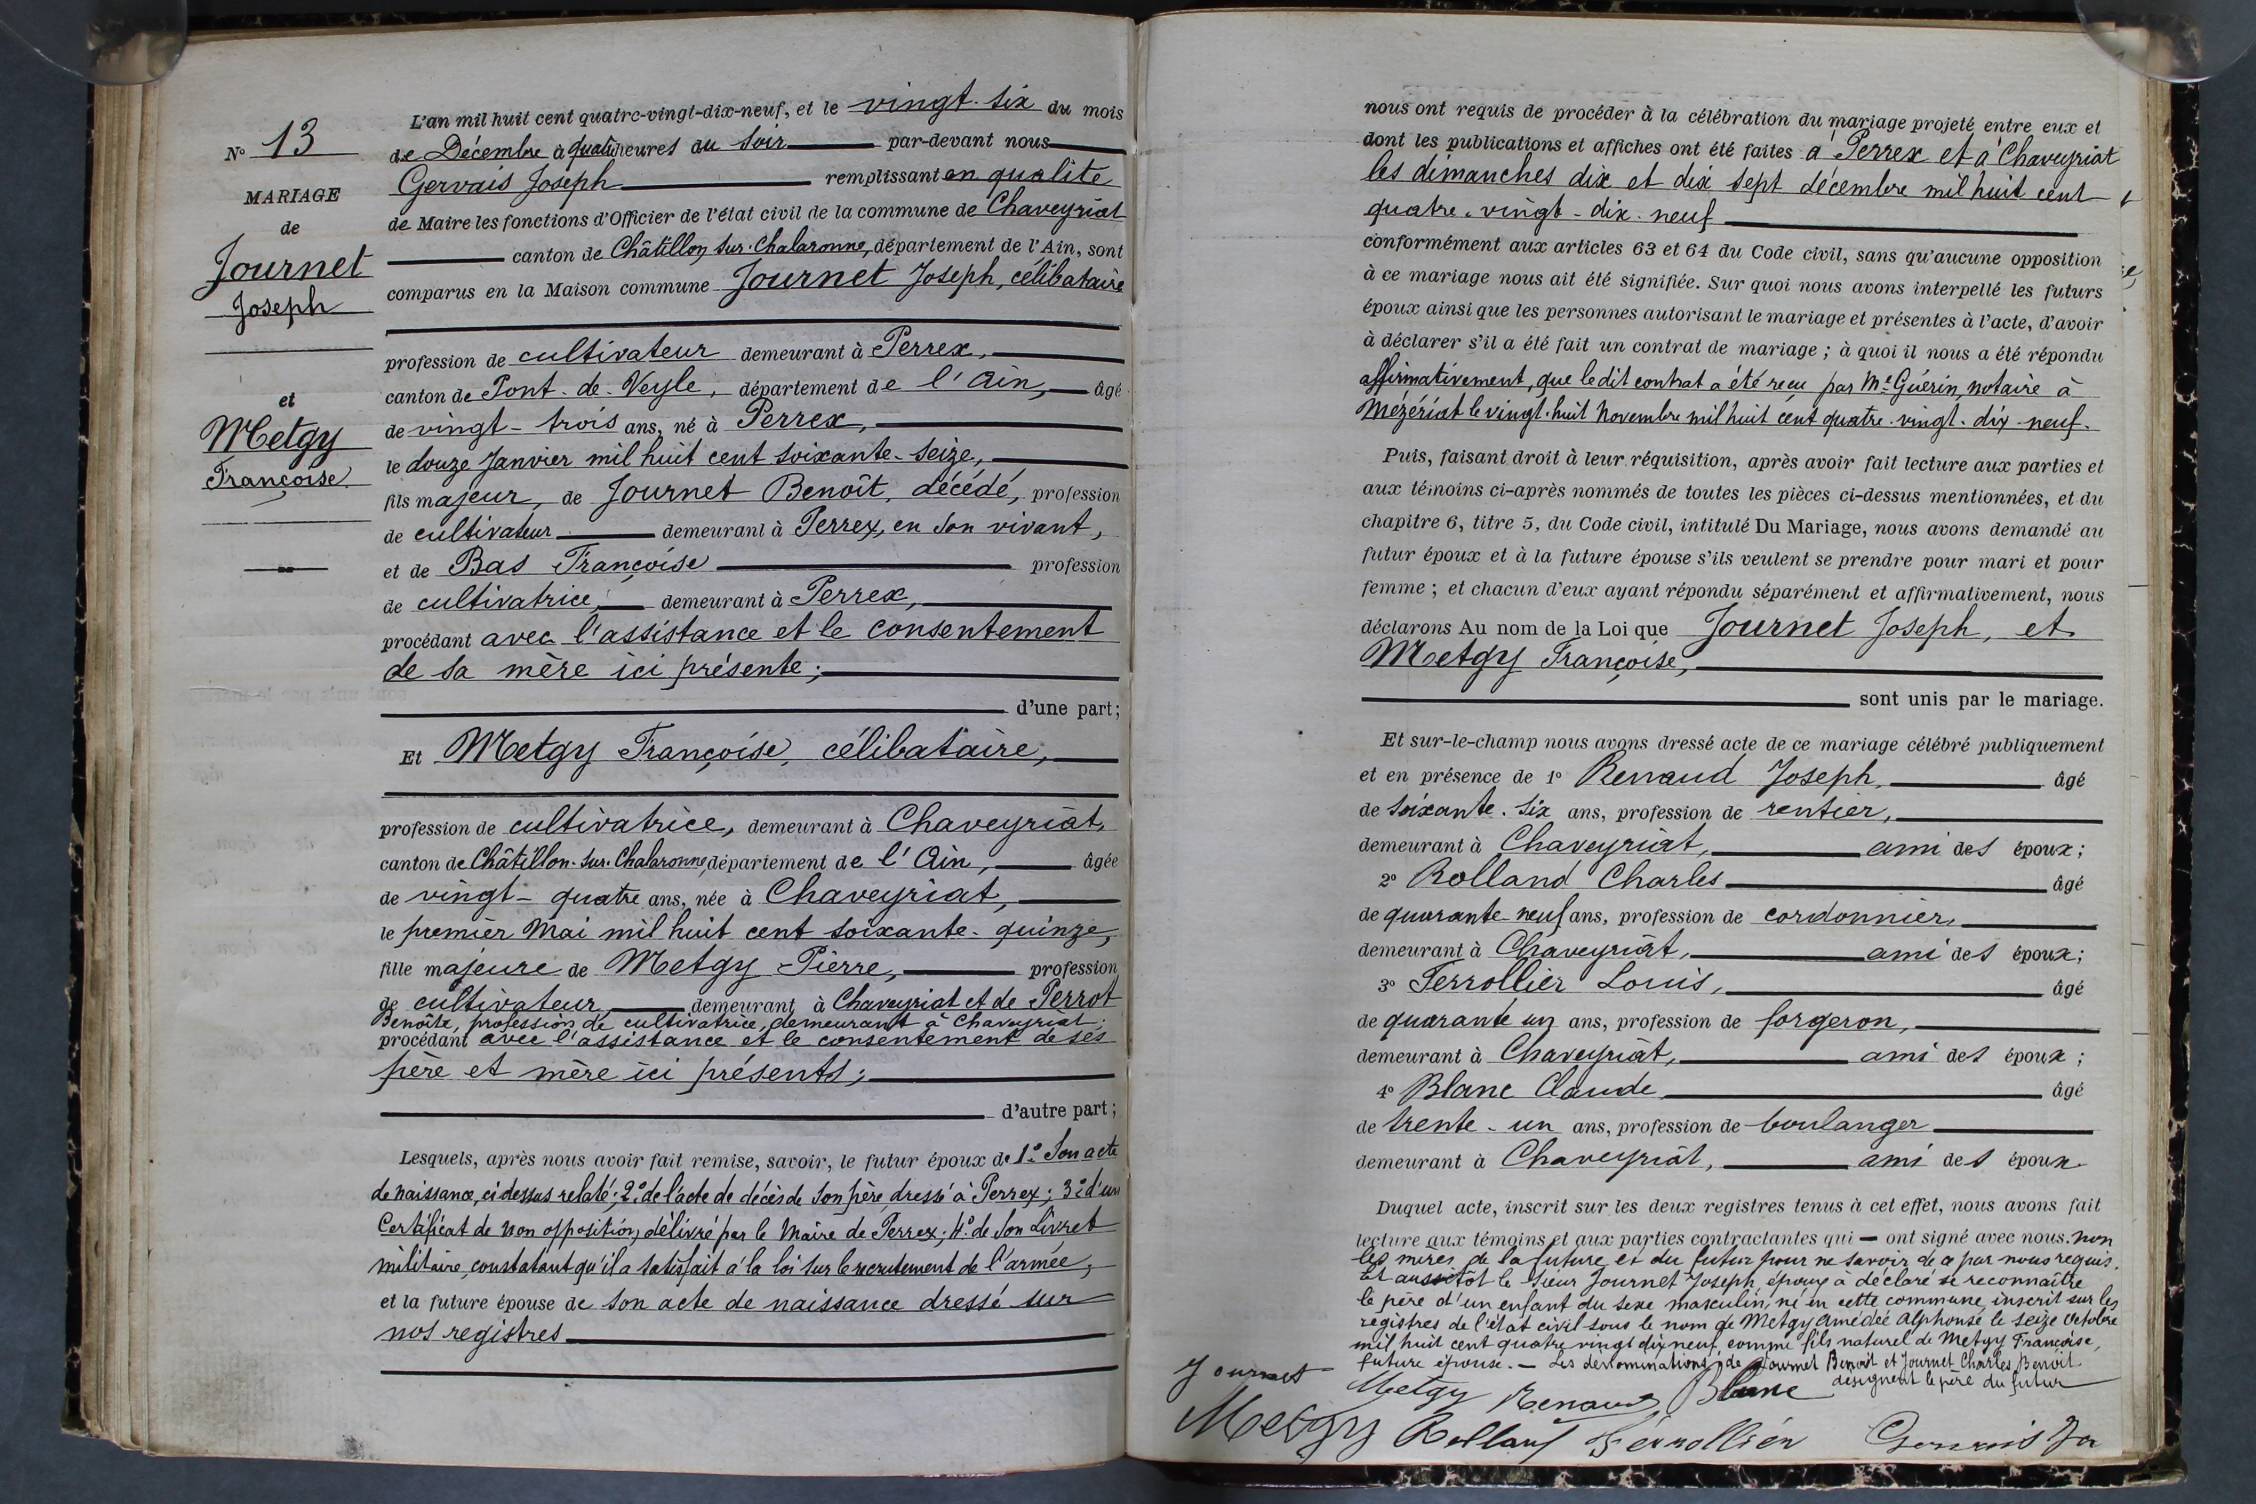 L'an mil huit cent quatre-vingt-dix-neuf, et le vingt-six du mois
de Décembre à quatre heures du soir par-devant nous
Gervais Joseph remplissant en qualité
de Maire les fonctions d'Officier de l'état civil de la commune de Chaveyriat
canton de Châtillon sur Chalaronne, département de l'Ain, sont
comparus en la Maison commune Journet Joseph, célibataire
profession de cultivateur demeurant à Perrex,
canton de Pont-de-Veyle, département de l'Ain, âgé
de vingt-trois ans, né à Perrex,
le douze Janvier mil huit cent soixante-seize,
fils majeur, de Journet Benoît, décédé, profession
de cultivateur demeurant à Perrex, en son vivant,
et de Bas Françoise profession
de cultivatrice, demeurant à Perrex,
procédant avec l'assistance et le consentement
de sa mère ici présente;
d'une part;
Et Metgy Françoise, célibataire,
profession de cultivatrice, demeurant à Chaveyriat,
canton de Châtillon-sur-Chalaronne, département de l'Ain, âgée
de vingt-quatre ans, née à Chaveyriat,
le premier Mai mil huit cent soixante-quinze,
fille majeure de Metgy Pierre, profession
de cultivateur, demeurant à Chaveyriat et de Perrot
Benoîte, profession de cultivatrice, demeurant à Chaveyriat;
procédant avec l'assistance et le consentement de ses
père et mère ici présents;
d'autre part;
Lesquels, après nous avoir fait remise, savoir, le futur époux de 1° Son acte
de naissance, ci dessus relaté; 2° de l'acte de décès de son père dressé à Perrex; 3° d'un
Certificat de non opposition, délivré par le Maire de Perrex; 4° de son Livret
militaire, constatant qu'il a satisfait à la loi sur le recrutement de l'armée,
et la future épouse de son acte de naissance dressé sur
nos registres
N° 13
MARIAGE
de
Journet
Joseph
et
Metgy
Françoise
nous ont requis de procéder à la célébration du mariage projeté entre eux et
dont les publications et affiches ont été faites à Perrex et à Chaveyriat
les dimanches dix et dix sept décembre mil huit cent
quatre-vingt-dix-neuf
conformément aux articles 63 et 64 du Code civil, sans qu'aucune opposition
à ce mariage nous ait été signifiée. Sur quoi nous avons interpellé les futurs
époux ainsi que les personnes autorisant le mariage et présentes à l'acte, d'avoir
à déclarer s'il a été fait un contrat de mariage; à quoi il nous a été répondu
affirmativement, que le dit contrat a été reçu par Me Guérin, notaire à
Mézériat le vingt-huit Novembre mil huit cent quatre-vingt-dix-neuf.
Puis, faisant droit à leur réquisition, après avoir fait lecture aux parties et
aux témoins ci-après nommés de toutes les pièces ci-dessus mentionnées, et du
chapitre 6, titre 5, du Code civil, intitulé Du Mariage, nous avons demandé au
futur époux et à la future épouse s'ils veulent se prendre pour mari et pour
femme; et chacun d'eux ayant répondu séparément et affirmativement, nous
déclarons Au nom de la Loi que Journet Joseph, et
Metgy Françoise,
sont unis par le mariage.
Et sur-le-champ nous avons dressé acte de ce mariage célébré publiquement
et en présence de 1° Renaud Joseph, âgé
de soixante-six ans, profession de rentier,
demeurant à Chaveyriat, ami des époux;
2° Rolland Charles âgé
de quarante-neuf ans, profession de cordonnier,
demeurant à Chaveyriat, ami des époux;
3° Ferrollier Louis, âgé
de quarante un ans, profession de forgeron,
demeurant à Chaveyriat, ami des époux;
4° Blanc Claude âgé
de trente-un ans, profession de boulanger
demeurant à Chaveyriat, ami des époux
Duquel acte, inscrit sur les deux registres tenus à cet effet, nous avons fait
lecture aux témoins et aux parties contractantes qui ont signé avec nous. non
les mères de la future et du futur pour ne savoir de ce par nous requis.
Et aussitôt le sieur Journet Joseph époux à déclaré se reconnaître
le père d'un enfant du sexe masculin, né en cette commune, inscrit sur les
registres de l'état civil sous le nom de Metgy Amédée Alphonse le seize octobre
mil huit cent quatre vingt dix neuf, comme fils naturel de Metgy Françoise,
future épouse. - Les dénominations de Journet Benoit et Journet Charles Benoit
désignent le père du futur
Journet Metgy Renaud Blanc
Metgy Rolland Ferrollier Gervais Jh